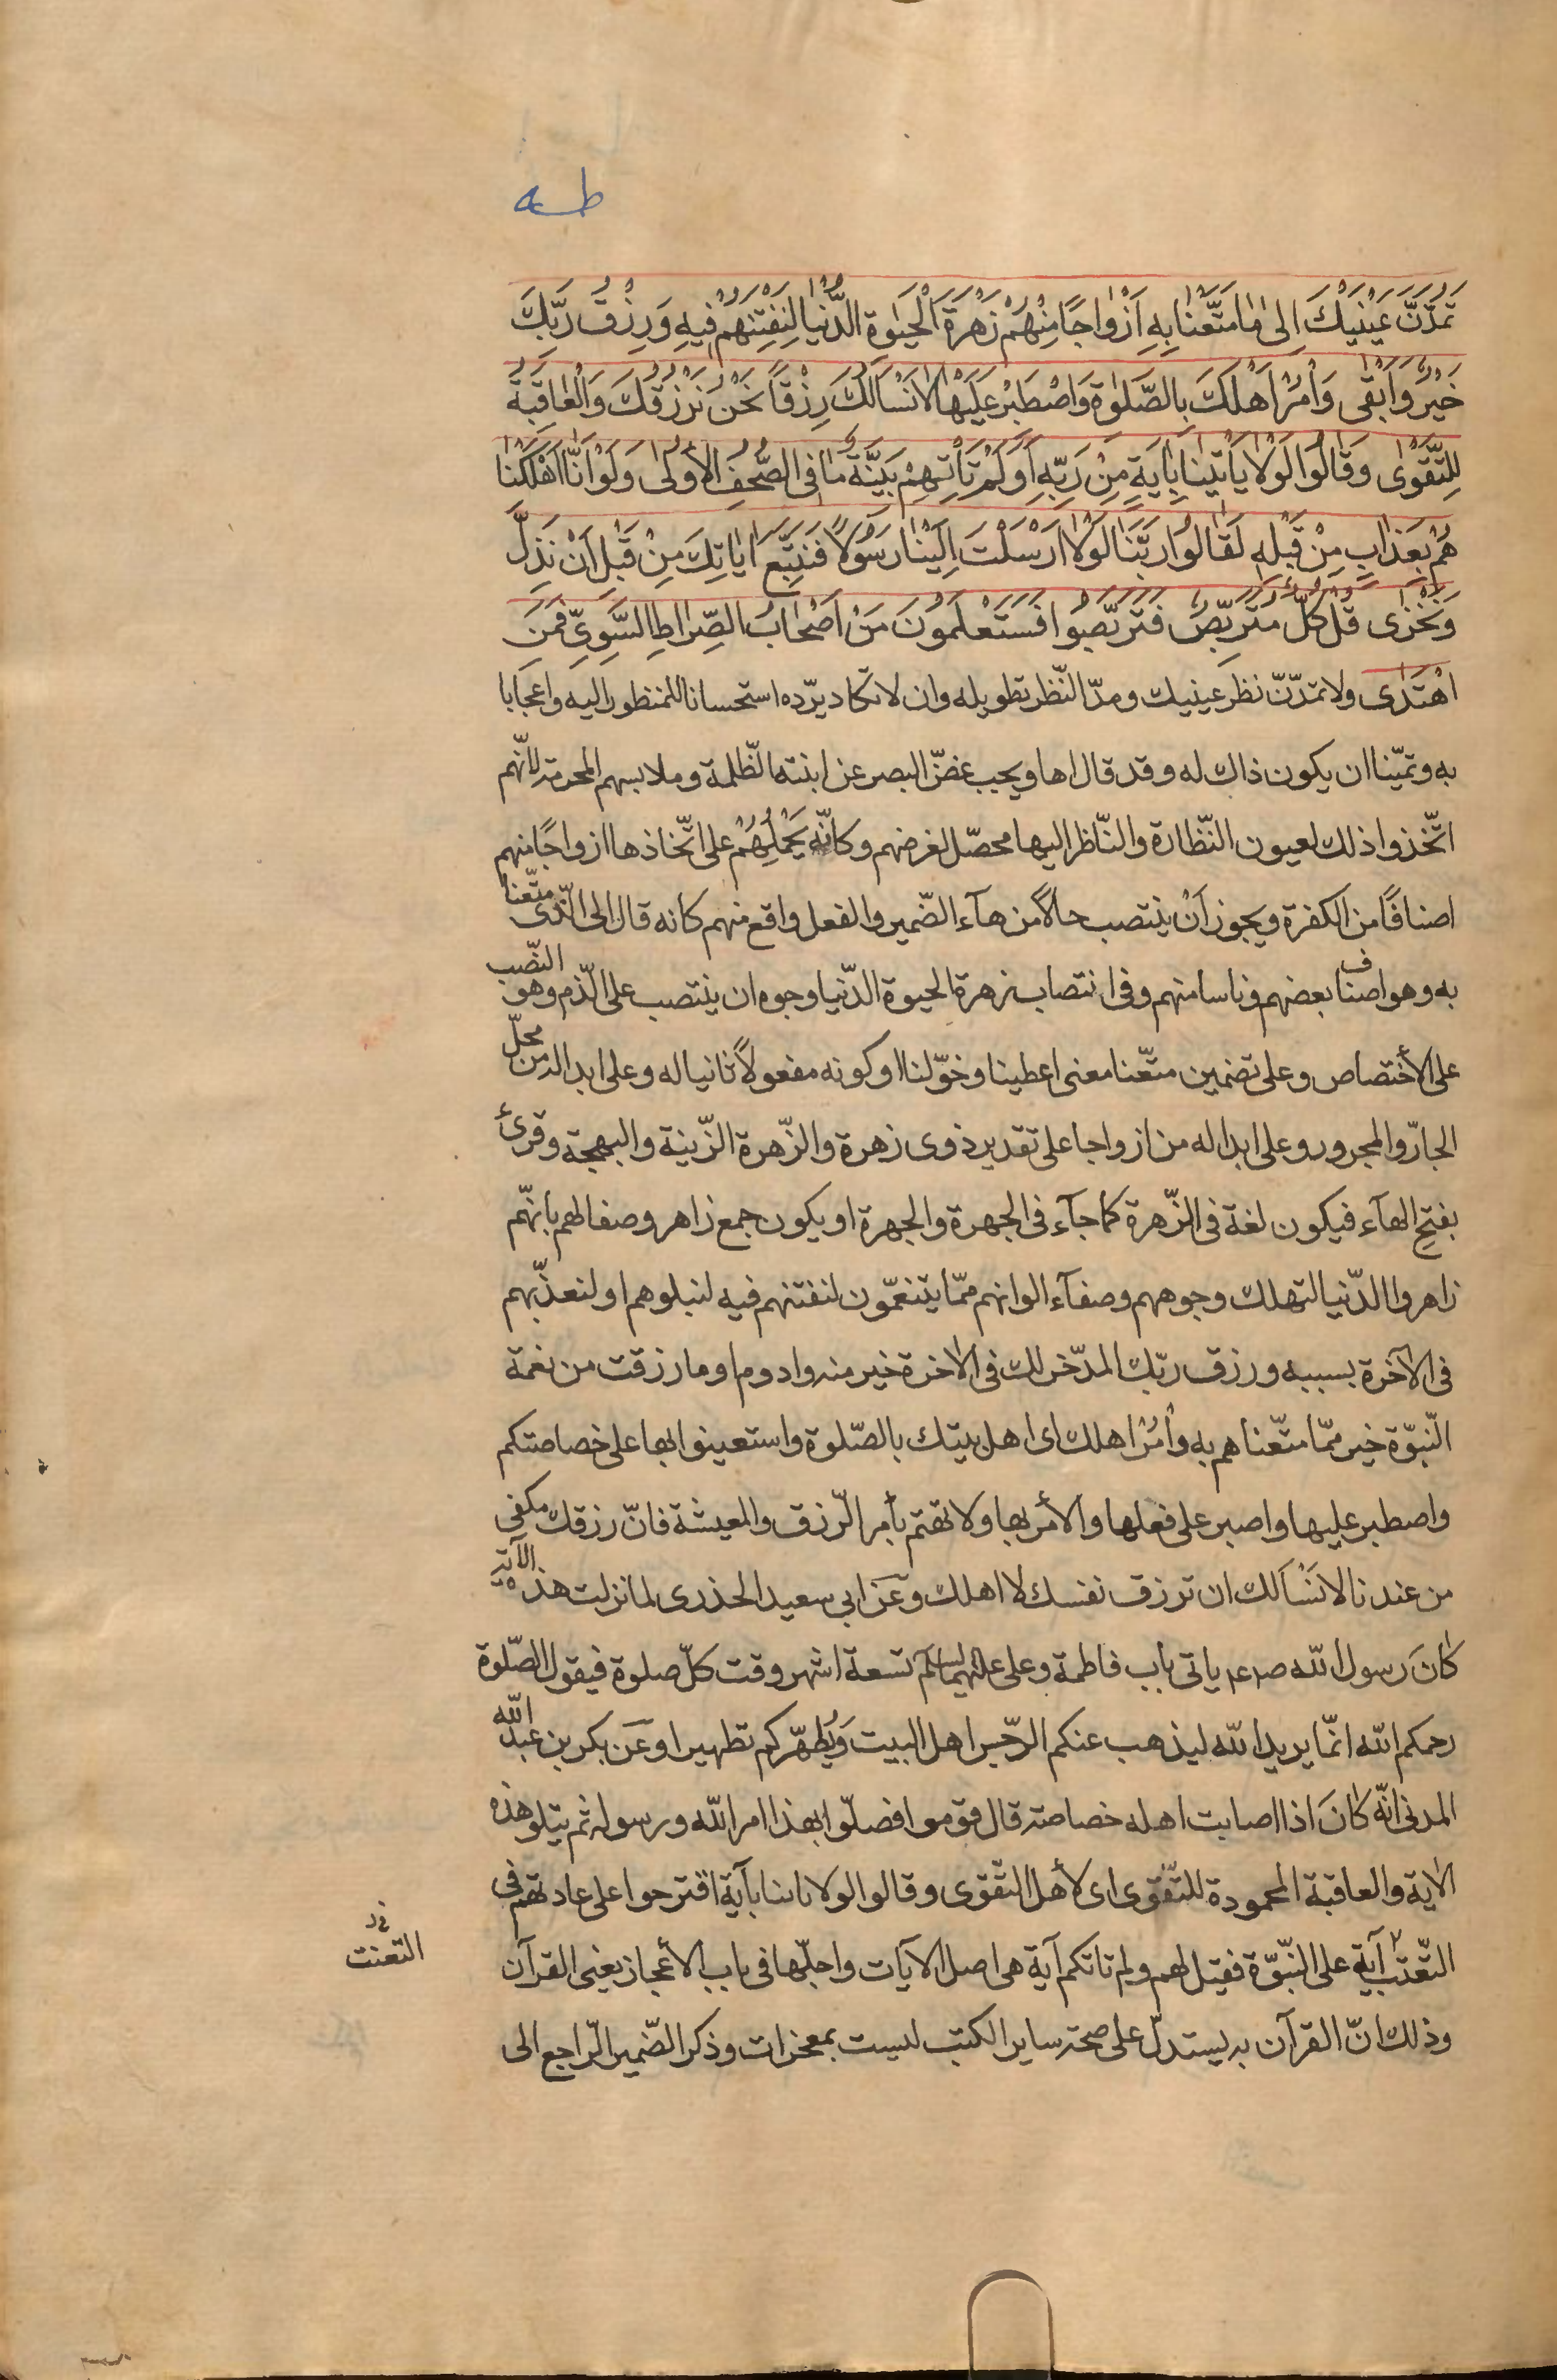 طه
تَمُدَّنَّ عَيْنَيْكَ اِلىٰ مٰا مَتَّعْنٰا بِهِ اَزْوٰاجًا مِنْهُمْ زَهْرَةَ الْحَيٰوةِ الدُّنْيٰا لِنَفْتِنَهُمْ فِيهِ وَرِزْقُ رَبِّكَ
خَيْرٌ وَاَبْقٰى وَأْمُرْ اَهْلَكَ بِالصَّلٰوةِ وَاصْطَبِرْ عَلَيْهٰا لاٰ نَسْاَلُكَ رِزْقًا نَحْنُ نَرْزُقُكَ وَالْعٰاقِبَةُ
لِلتَّقْوٰى وَقٰالُوا لَوْلاٰ يَأْتِينٰا بِاٰيَةٍ مِنْ رَبِّهِ اَوَلَمْ تَأْتِهِمْ بَيِّنَةُ مٰا فِى الصُّحُفِ الْأُولىٰ وَلَوْ اَنّٰا اَهْلَكْنٰا
هُمْ بِعَذٰابٍ مِنْ قَبْلِهِ لَقٰالُوا رَبَّنٰا لَوْلاٰ اَرْسَلْتَ اِلَيْنٰا رَسُولاً فَنَتَّبِعَ اٰيٰاتِكَ مِنْ قَبْلِ اَنْ نَذِلَّ
وَنَخْزٰى قُلْ كُلٌّ مُتَرَبِّصٌ فَتَرَبَّصُوا فَسَتَعْلَمُونَ مَنْ اَصْحٰابُ الصِّرٰاطِ السَّوِيِّ وَمَنِ
اهْتَدٰى ولا تمدّنّ نظر عينيك ومدّ النّظر تطويله وان لا تكاد يردّه استحسانا للمنظور اليه واعجابا
به وتمنّيا ان يكون ذلك له وقد قال اها ويجب غضّ البصر عن ابنته الظّلمة وملابسهم المحرمة لانّهم
اتّخذوا ذلك لعيون النّظارة والنّاظر اليها محصّل لغرضهم وكانّه يَحْمِلُهُمْ على اتّخاذها ازواجًا منهم
اصنافًا من الكفرة ويجوز اَنْ ينتصب حالاً من هآء الضّمير والفعل واقع منهم كانه قال الى الّذى متّعنا
به وهو اصناف بعضهم وناسا منهم وفى انتصاب زهرة الحيوة الدّنيا وجوه ان ينتصب على الذّم وهو النّصب
على الأختصاص وعلى تضمين متّعنا معنى اعطينا وخوّلنا او كونه مفعولاً ثانيا له وعلى ابداله من محلّ
الجارّ والمجرور وعلى ابداله من ازواجا على تقدير ذوى زهرة والزّهرة الزّينة والبهجة وقرئ
بفتح الهآء فيكون لغة فى الزّهرة كما جآء فى الجهرة والجهرة او يكون جمع زاهر وصفا لهم بأنّهم
زاهروا الدّنيا لتهلك وجوههم وصفآء الوانهم ممّا يتنعّمون لنفتنهم فيه لنبلوهم او لنعذّبهم
فى الآخرة بسببه ورزق ربّك المدّخر لك فى الاٰخرة خير منه وادوم او ما رزقت من نعمة
النّبوّة خير ممّا متّعناهم به وأمُرْ اهلك اى اهل بيتك بالصّلوة واستعينوا بها على خصاصتكم
واصطبر عليها واصبر على فعلها والأمر بها ولا تهتم بأمر الرّزق والمعيشة فانّ رزقك مكفى
من عندنا لا نَسْاَلك ان ترزق نفسك لا اهلك وعَن ابى سعيد الخذرى لما نزلت هذه الآية
كٰانَ رسول اللّه صه ياتى باب فاطمة وعلى عليهما السلم تسعة اشهر وقت كلّ صلوة فيقول الصّلوة
رحمكم اللّه انّما يريد اللّه ليذهب عنكم الرّجس اهل البيت وَيُطهّركم تطهيرا وعَن بكر بن عبد اللّه
المدنى انّه كٰانَ اذا اصابت اهله خصاصة قال قوموا فصلّوا بهذا امر اللّه ورسوله ثم يتلو هذه
الاٰية والعاقبة المحمودة للتّقوى اى لأهل التّقوى وقالوا لولا ياتينا بآية اقترحوا على عادتهم فى
التّعنّت آية على النّبوّة فقيل لهم ولم تاتكم آية هى اصل الآيات واجلّها فى باب الأعجاز يعنى القرآن
وذلك انّ القرآن به يستدلّ على صحة ساير الكتب ليست بمعجزات وذكر الضّمير الرّاجع الى
التعنت